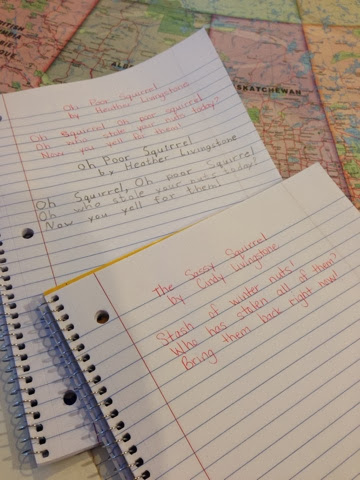 ALB
SKATCHEWAN
Oh Poor Squirrel
by Heather Livingstone
Oh Squirrel Oh poor squirrel
Oh who stole your nuts today?
Now you yell for them!
Oh Poor Squirrel
by Heather Livingstone
Oh Squirrel, Oh poor Squirrel
Oh who stole your nuts today?
Now you yell for them!
The Sassy Squirrel
by Cindy Livingstone
Stash of winter nuts!
Who has stolen all of them?
Bring them back right now!